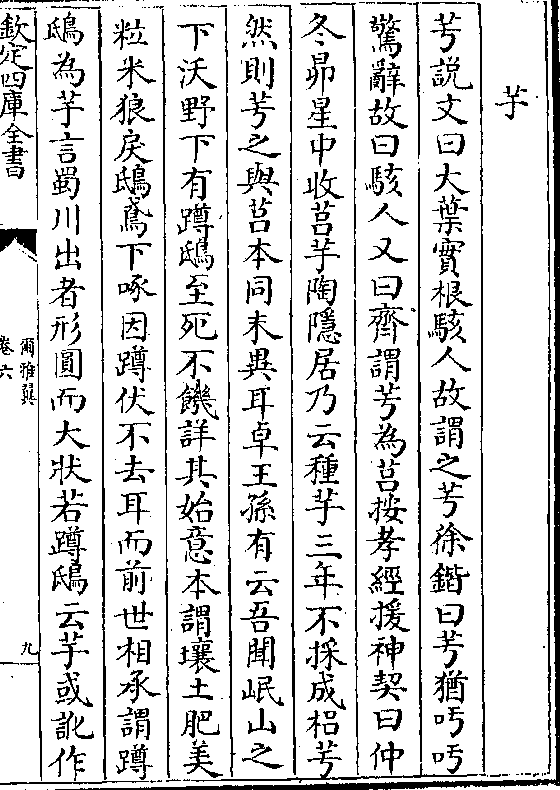 芋
芌說文曰大葉實根駭人故謂之芌徐鍇曰芌猶吁吁
驚辭故曰駭人又曰齊謂芌為莒按孝經援神契曰仲
冬昴星中收莒芋陶隱居乃云種芋三年不採成梠芌
然則芌之與莒本同末異耳卓王孫有云吾聞岷山之
下沃野下有蹲鴟至死不饑詳其始意本謂壤土肥美
粒米狼戾鴟鳶下啄因蹲伏不去耳而前世相承謂蹲
鴟為芋言蜀川出者形圓而大狀若蹲鴟云芋或訛作
欽定四庫全書
爾雅翼
卷六
九